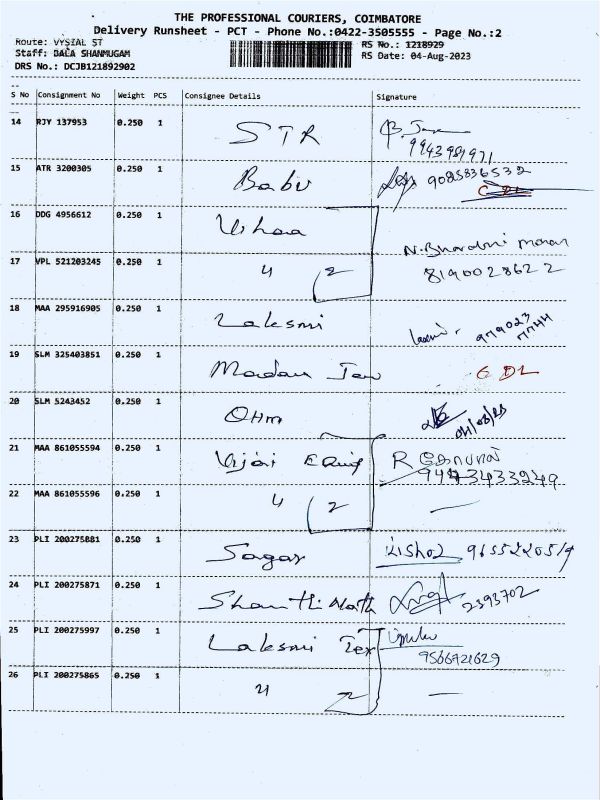 THE PROFESSIONAL COURIERS, COIMBATORE
Delivery Runsheet - PCT - Phone No.:0422-3505555 - Page No.:2
Route: VYSIAL ST
RS No.: 1218929
Staff: BALA SHANMUGAM
RS Date: 04-Aug-2023
DRS No.: DCJB121892902
S No Consignment No Weight PCS Consignee Details Signature
14 RJY 137953 0.250 1 STR
9943981971
15 ATR 3200305 0.250 1 Babu 9085836532
16 DDG 4956612 0.250 1
N. Bharathi mohan
17 VPL 521203245 0.250 1 " 2 8190028622
18 MAA 295916905 0.250 1 Laksmi
979023
7744
19 SLM 325403851 0.250 1 Madau
20 SLM 5243452 0.250 1 OHm 04/08/23
21 MAA 861055594 0.250 1 Vijai R
9443433249
22 MAA 861055596 0.250 1 " 2 —
23 PLI 200275881 0.250 1 Sagar 9655220519
24 PLI 200275871 0.250 1 Shanthi Nath 2393702
25 PLI 200275997 0.250 1 Laksmi Tex
9566921629
26 PLI 200275865 0.250 1 " 2 —